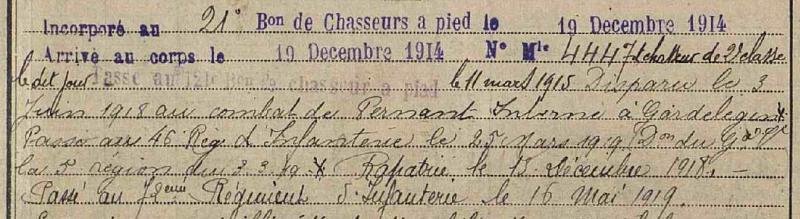 Incorporé au 21e Bon de Chasseurs a pied le 19 Decembre 1914
Arrivé au corps le 19 Decembre 1914 No Mle 4447 chasseur de 2e classe
le dit jour Passé au 121e Bon de chasseur a pied le 11 mars 1915 Disparu le 3
Juin 1918 au combat de Pernant Interné à Gardelegen X
Passé au 46 Rég d'Infanterie le 25 Mars 1919 (Don du Gal Ct
la 5e région du 3.3.19 X Rapatrié le 15 Décembre 1918. -
Passé au 72eme Régiment d'Infanterie le 16 Mai 1919.